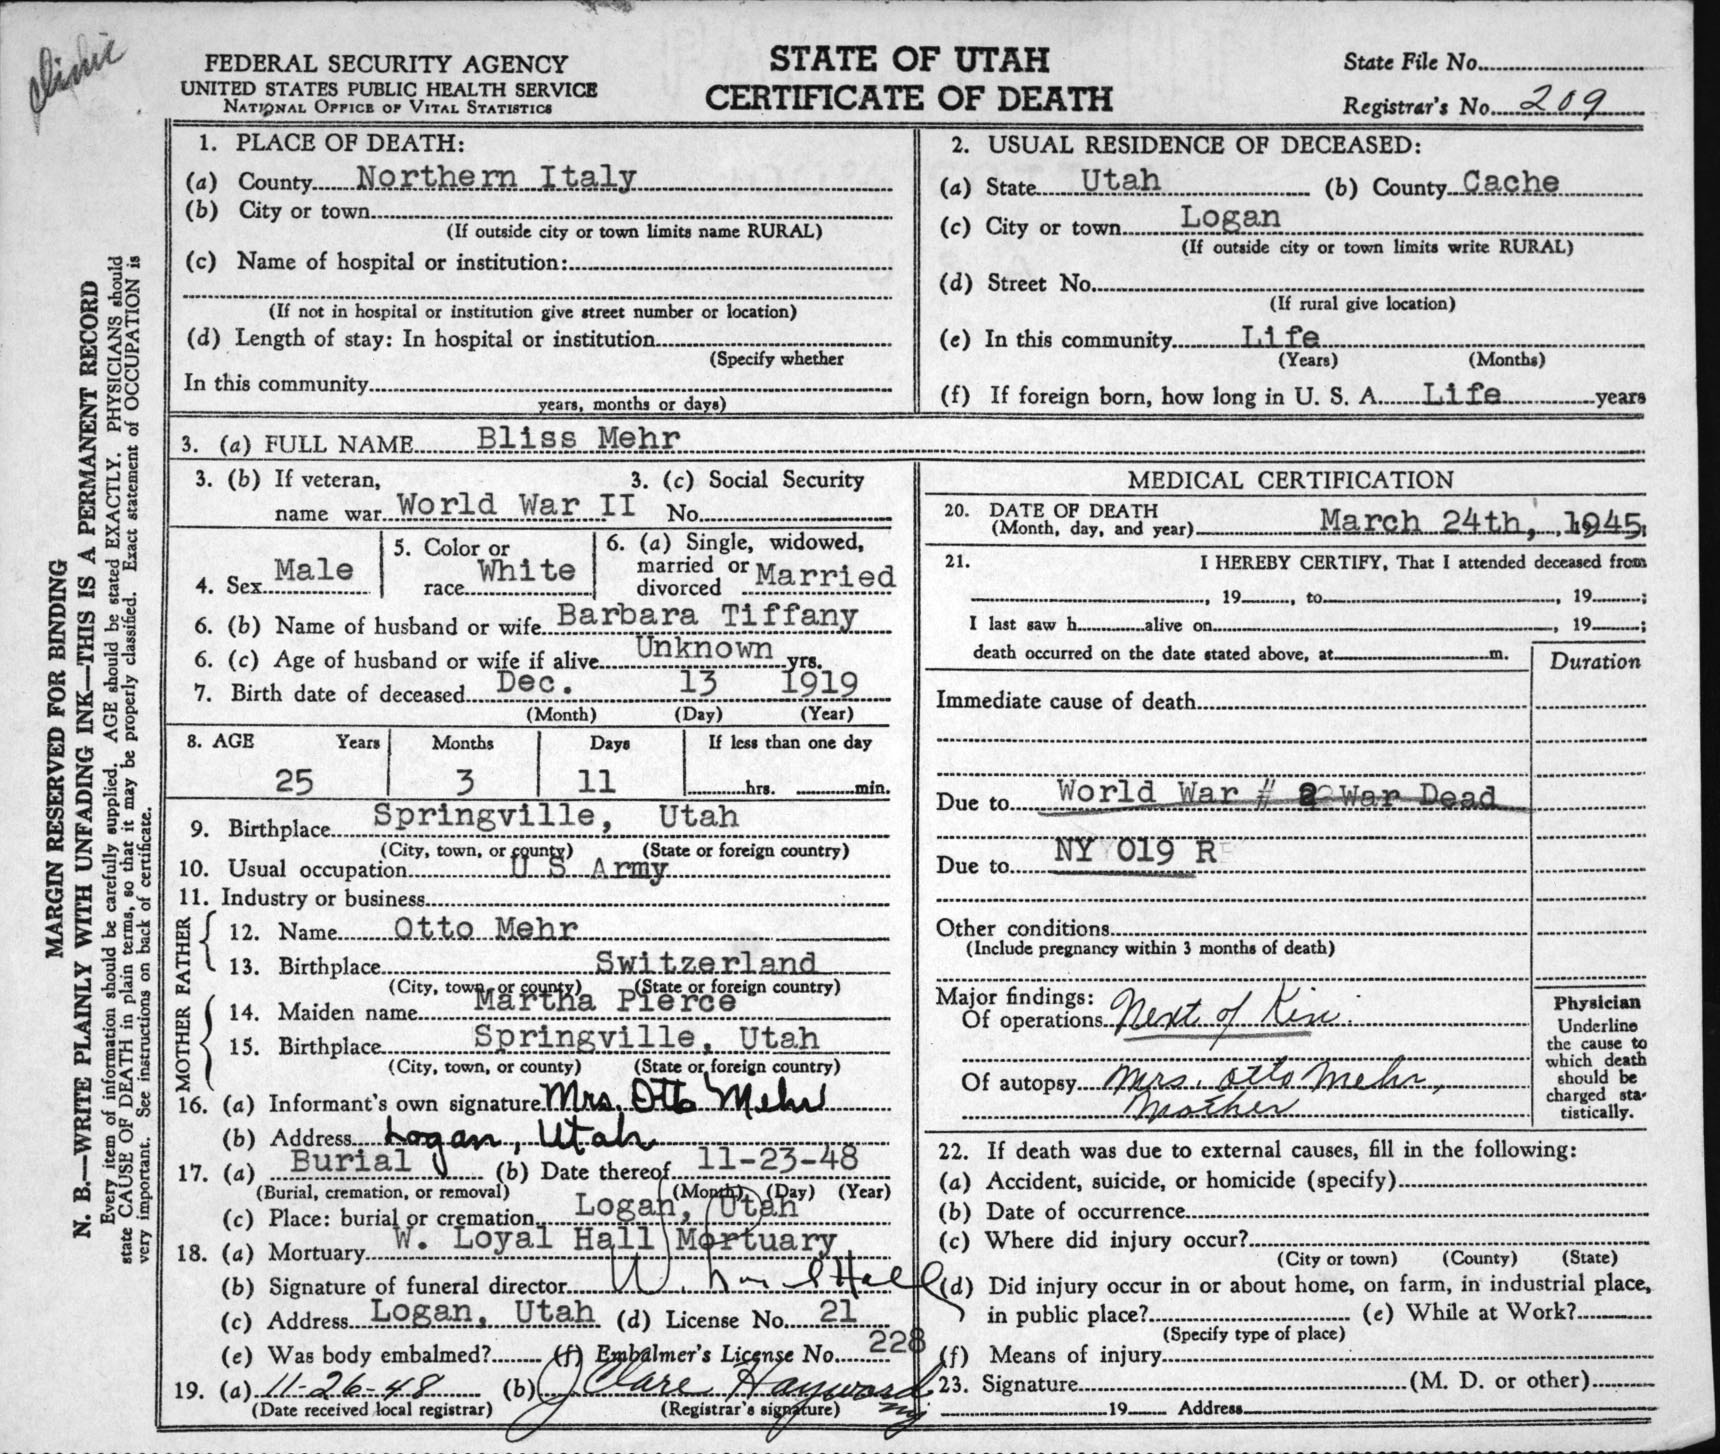 clinic
FEDERAL SECURITY AGENCY
UNITED STATES PUBLIC HEALTH SERVICE
NATIONAL OFFICE OF VITAL STATISTICS
STATE OF UTAH
CERTIFICATE OF DEATH
State File No.
Registrar's No. 209
MARGIN RESERVED FOR BINDING
N. B.—WRITE PLAINLY WITH UNFADING INK—THIS IS A PERMANENT RECORD
Every item of information should be carefully supplied. AGE should be stated EXACTLY. PHYSICIANS should
state CAUSE OF DEATH in plain terms, so that it may be properly classified. Exact statement of OCCUPATION is
very important. See instructions on back of certificate.
1. PLACE OF DEATH:
(a) County Northern Italy
(b) City or town
(If outside city or town limits name RURAL)
(c) Name of hospital or institution:
(If not in hospital or institution give street number or location)
(d) Length of stay: In hospital or institution
(Specify whether
In this community
years, months or days)
2. USUAL RESIDENCE OF DECEASED:
(a) State Utah (b) County Cache
(c) City or town Logan
(If outside city or town limits write RURAL)
(d) Street No.
(If rural give location)
(e) In this community Life
(Years) (Months)
(f) If foreign born, how long in U. S. A. Life years
3. (a) FULL NAME Bliss Mehr
3. (b) If veteran, 3. (c) Social Security
name war World War II No.
4. Sex Male
5. Color or
race White
6. (a) Single, widowed,
married or
divorced Married
6. (b) Name of husband or wife Barbara Tiffany
6. (c) Age of husband or wife if alive Unknown yrs.
7. Birth date of deceased Dec. 13 1919
(Month) (Day) (Year)
8. AGE Years Months Days If less than one day
25 3 11 hrs. min.
9. Birthplace Springville, Utah
(City, town, or county) (State or foreign country)
10. Usual occupation U S Army
11. Industry or business
FATHER
12. Name Otto Mehr
13. Birthplace Switzerland
(City, town, or county) (State or foreign country)
MOTHER
14. Maiden name Martha Pierce
15. Birthplace Springville, Utah
(City, town, or county) (State or foreign country)
16. (a) Informant's own signature Mrs. Otto Mehr
(b) Address Logan, Utah
17. (a) Burial (b) Date thereof 11-23-48
(Burial, cremation, or removal) (Month) (Day) (Year)
(c) Place: burial or cremation Logan, Utah
18. (a) Mortuary W. Loyal Hall Mortuary
(b) Signature of funeral director W. Loyal Hall
(c) Address Logan, Utah (d) License No. 21
(e) Was body embalmed? (f) Embalmer's License No. 228
19. (a) 11-26-48 (b) J Clare Hayward
(Date received local registrar) (Registrar's signature)
MEDICAL CERTIFICATION
20. DATE OF DEATH
(Month, day, and year) March 24th, 1945;
21. I HEREBY CERTIFY, That I attended deceased from
, 19 , to , 19 ;
I last saw h alive on , 19 ;
death occurred on the date stated above, at m.
Duration
Immediate cause of death
Due to World War # 2 War Dead
Due to NY 019 R
Other conditions
(Include pregnancy within 3 months of death)
Major findings:
Of operations Next of Kin.
Of autopsy Mrs. Otto Mehr,
Mother
Physician
Underline
the cause to
which death
should be
charged sta-
tistically.
22. If death was due to external causes, fill in the following:
(a) Accident, suicide, or homicide (specify)
(b) Date of occurrence
(c) Where did injury occur?
(City or town) (County) (State)
(d) Did injury occur in or about home, on farm, in industrial place,
in public place? (e) While at Work?
(Specify type of place)
(f) Means of injury
23. Signature (M. D. or other)
19 Address